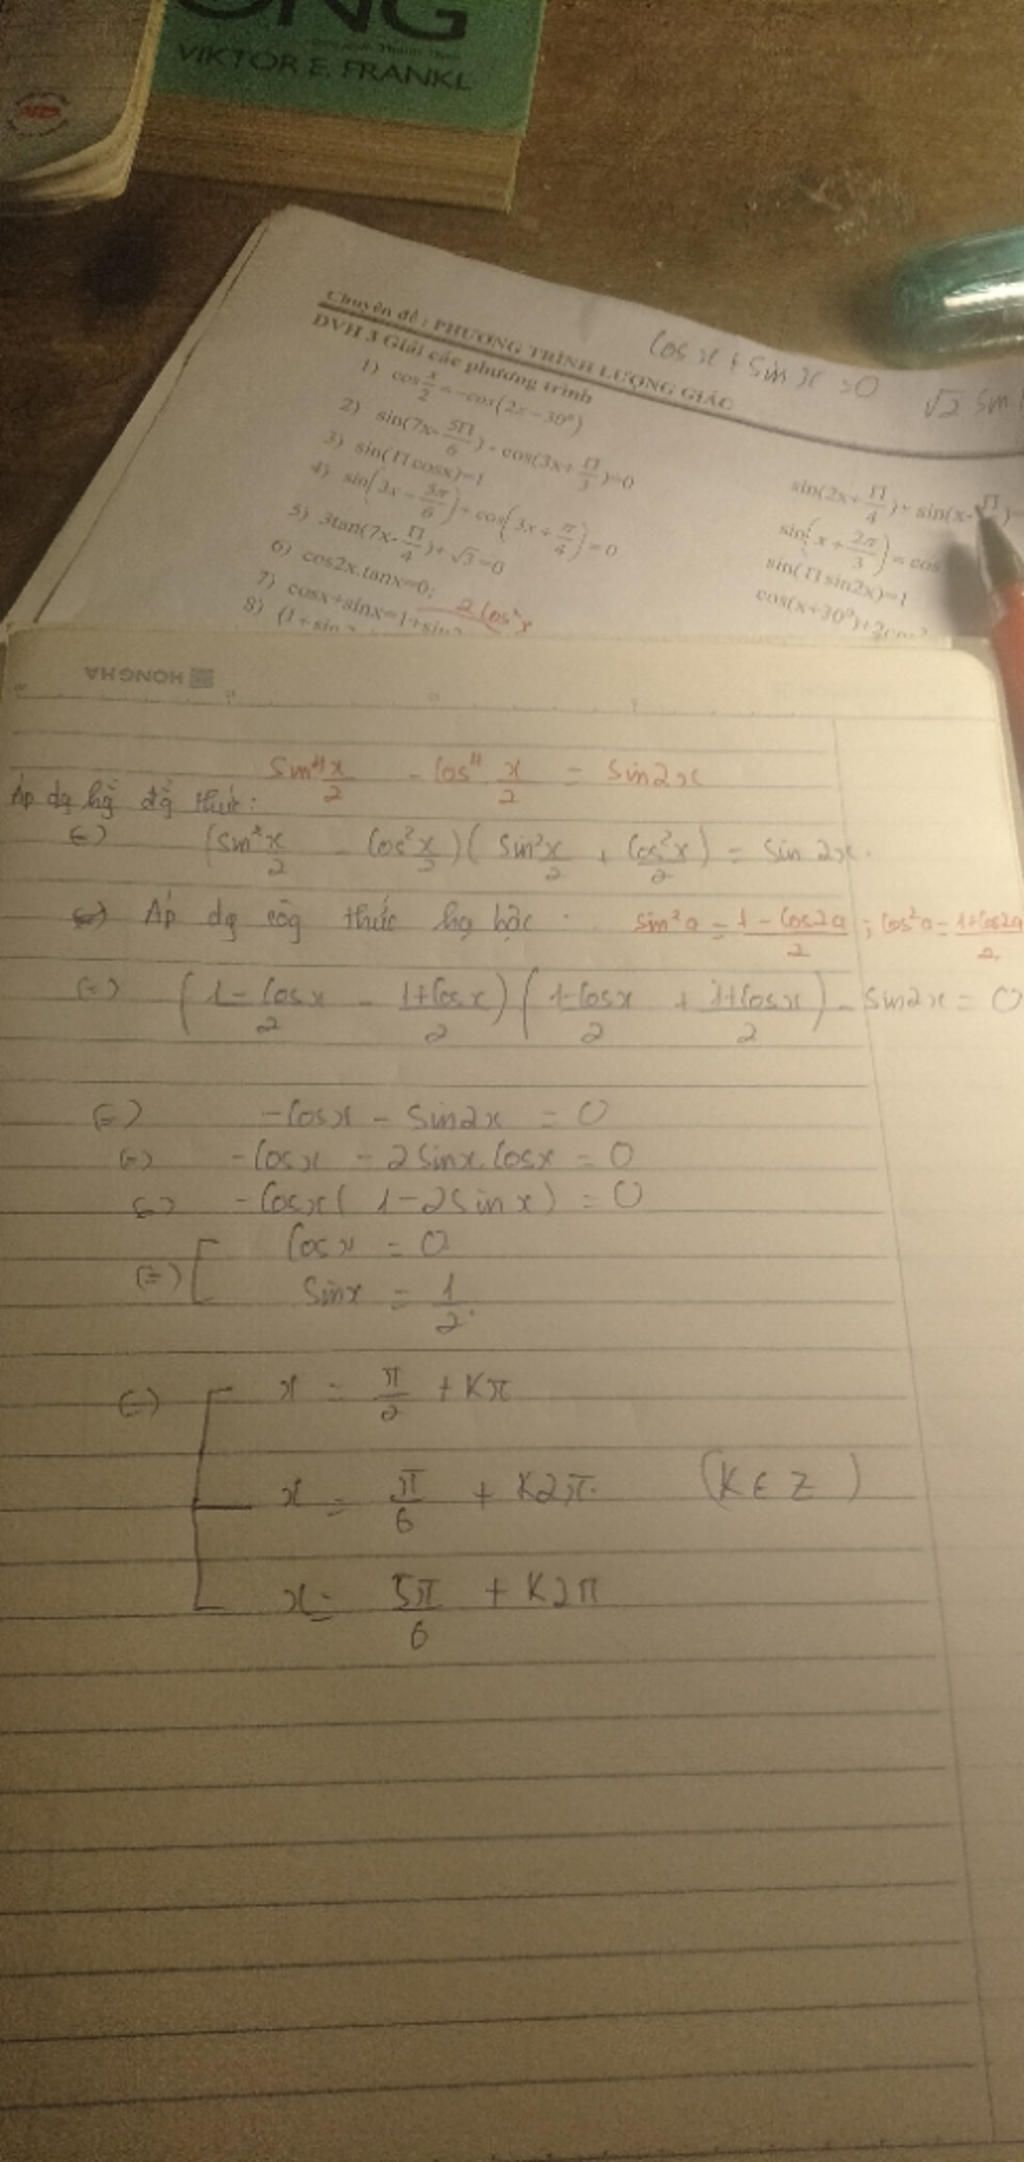 ONG
VIKTOR E. FRANKL
Chuyên đề : PHƯƠNG TRÌNH LƯỢNG GIÁC
cos x + sin x = 0
√2 sin
DVH 3 Giải các phương trình
1) cos x/2 = -cos(2x-30°)
2) sin(7x- 5Π/6) - cos(3x+ Π/3)=0
3) sin(Πcosx)=1
4) sin(3x - 5π/6) + cos(3x + π/4) = 0
5) 3tan(7x- Π/4)+ √3=0
6) cos2x.tanx=0; 2cos²x
7) cosx+sinx=1+sin2
8) (1+sin
sin(2x+ Π/4)+ sin(x- Π
sin(x + 2π/3) = cos
sin(Πsin2x)=1
cos(x+30°)+2cos²
HONGHA
sin⁴ x/2 - cos⁴ x/2 = sin2x
Áp dg hg đg thức:
(=) (sin² x/2 - cos² x/2)( sin² x/2 + cos² x/2) = sin 2x.
Áp dg côg thức hạ bậc : sin²a = 1 - cos2a/2 ; cos²a = 1+cos2a/2
(=) (1-cosx/2 - 1+cosx/2)(1-cosx/2 + 1+cosx/2) - sin2x = 0
(=) -cosx - sin2x = 0
(=) -cosx - 2sinx.cosx = 0
(=) -cosx( 1-2sinx) = 0
(=) [ cosx = 0
sinx = 1/2.
(=) [ x = π/2 + Kπ
x = π/6 + K2π. (K ∈ Z)
x = 5π/6 + K2π